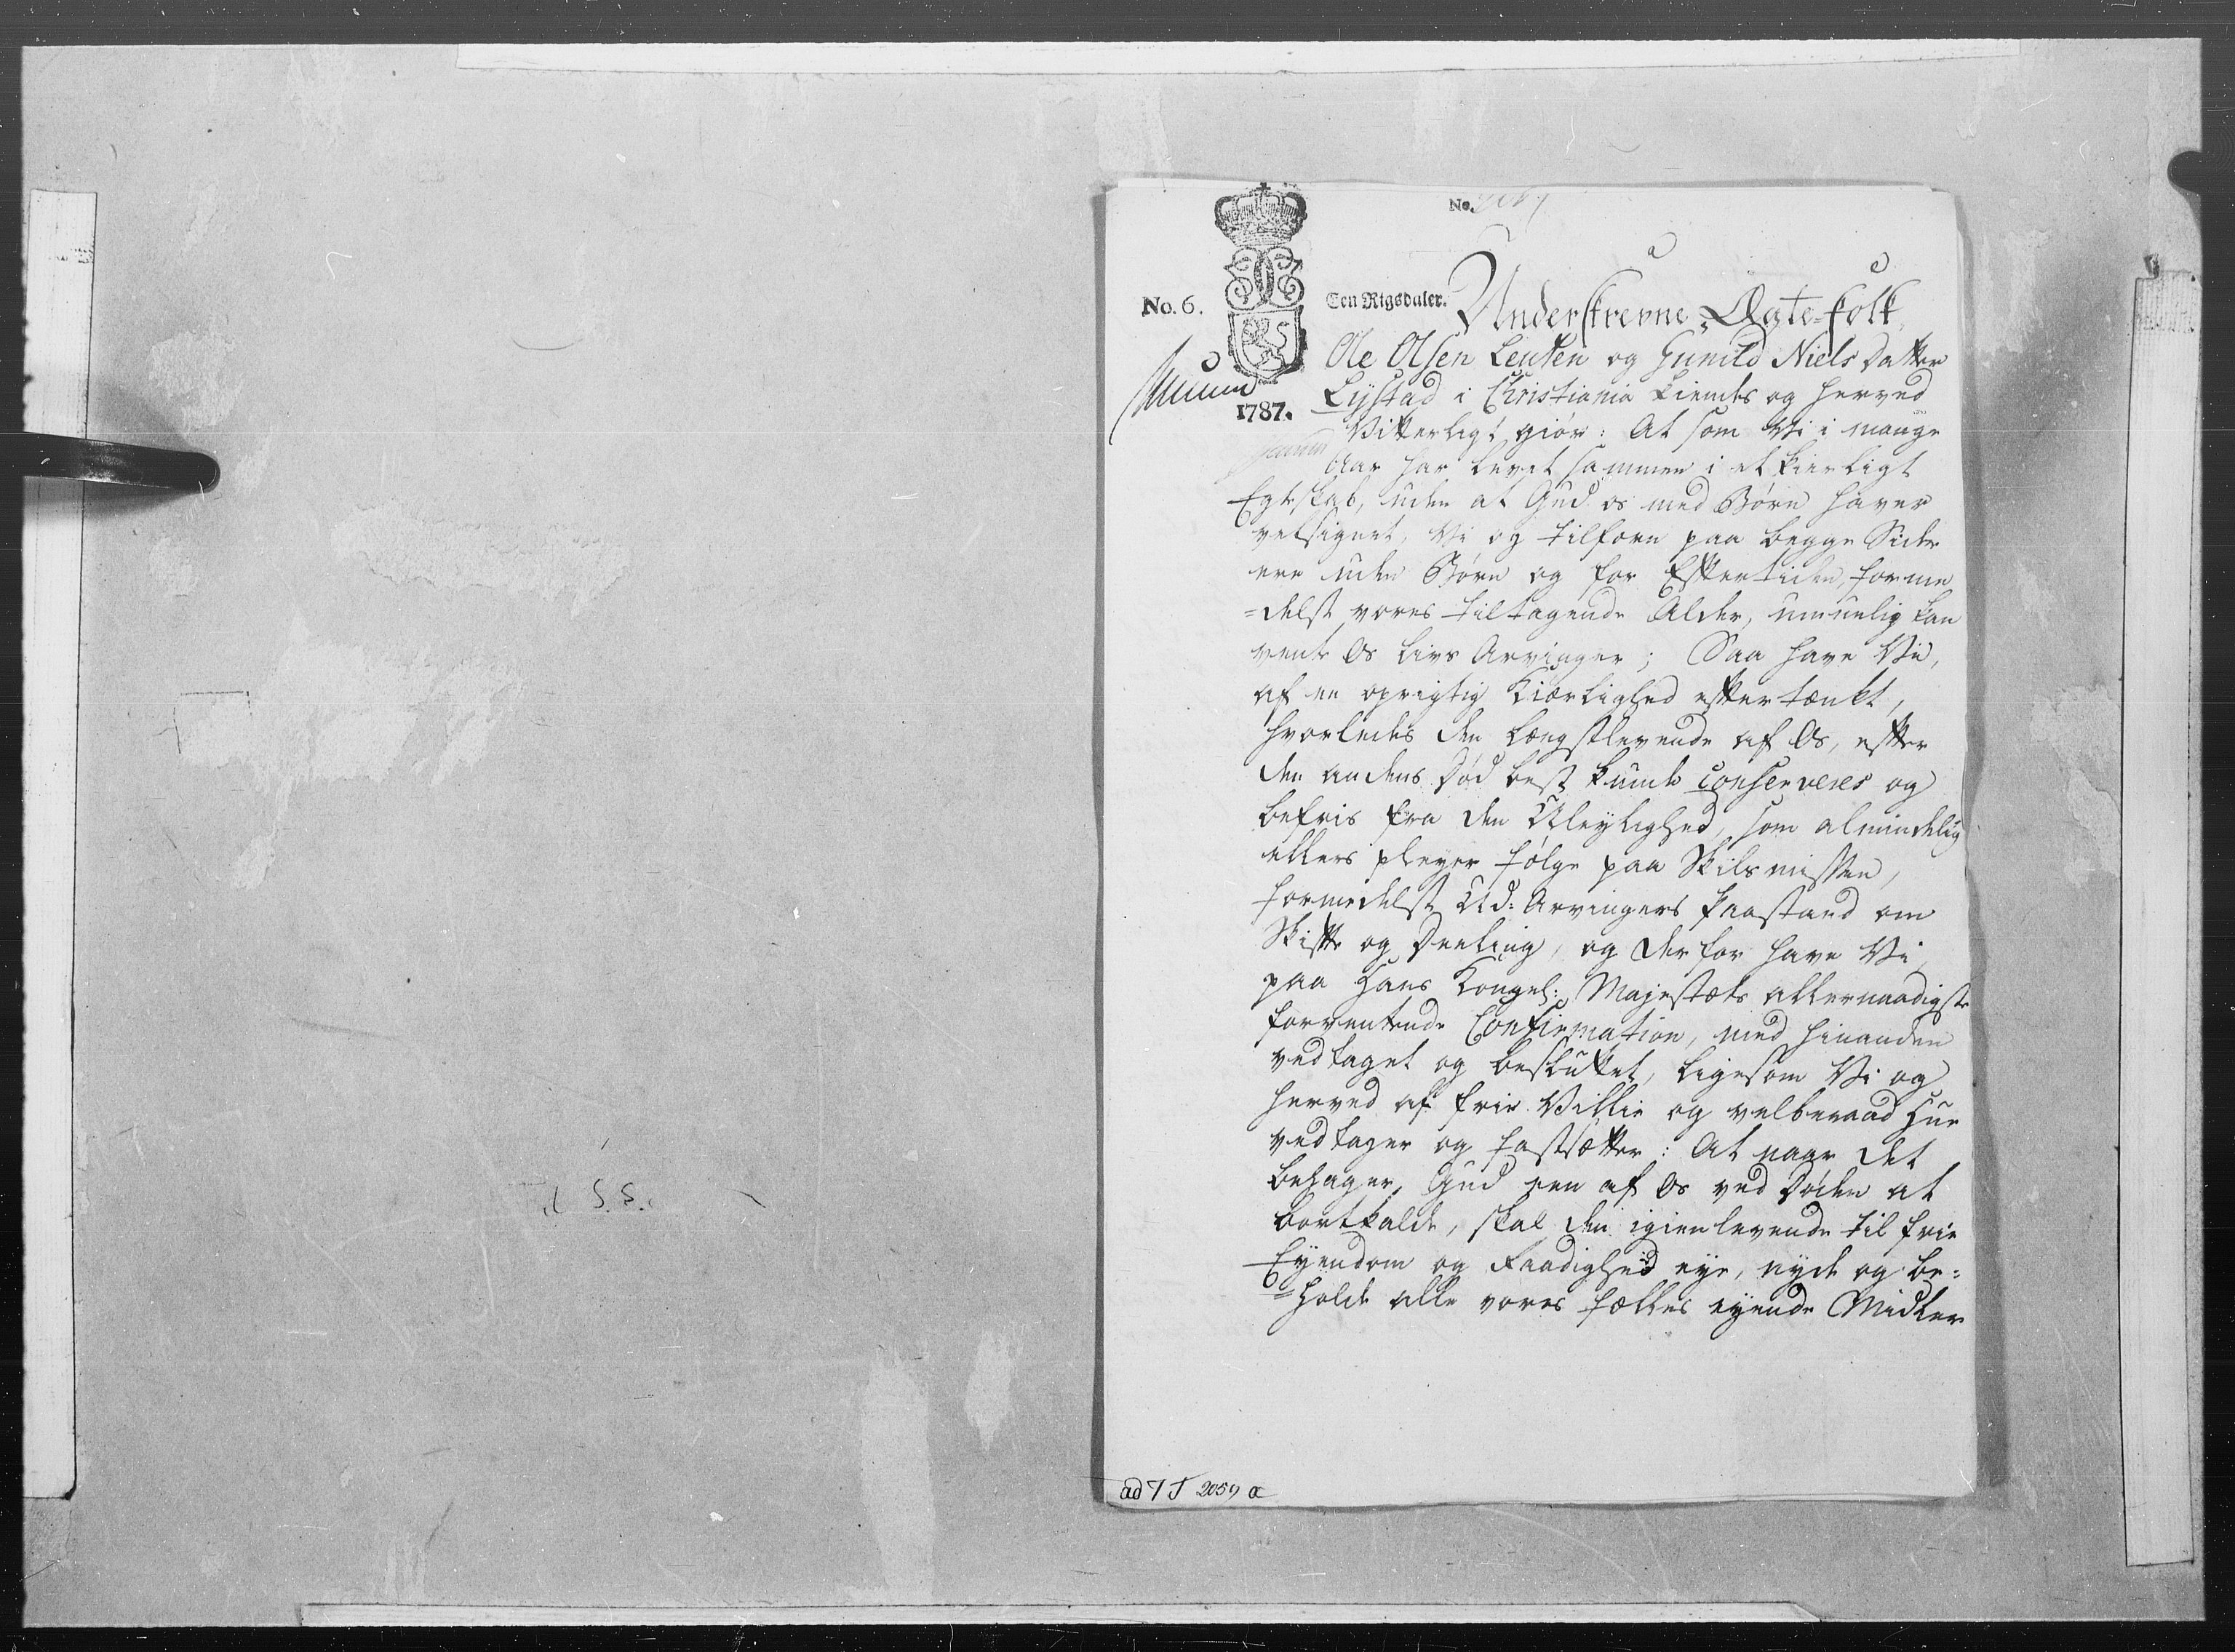 No.
No. 6.
Een Rigsdaler.
1787.
Underskrevne Ægte-folk
Ole Olsen Leuten og Gunild Niels Datter
Lystad i Christiania kiendes og herved
Vitterligt giør: At som Vi i mange
Aar har levet sammen i et kierligt
Egteskab, uden at Gud os med Børn haver
velsignet, Vi og tilforn paa begge Sider
ere uden Børn og for Eftertiden, forme
=delst vores tiltagende Alder, umuelig kan
vente Os Livs Arvinger; Saa have Vi,
af en oprigtig Kiærlighed eftertænkt,
hvorledes den længstlevende af Os, efter
den andens Død best kunde conserveres og
befries fra den Uleylighed, som almindelig
ellers pleyer følge paa Skilsmissen,
formedelst Ud-Arvingers Paastand om
Skifte og Deeling, og derfor have Vi
paa Hans Kongel: Majestæts allernaadigste
forventende Confirmation, med hinanden
vedtaget og besluttet, ligesom Vi og
herved af frie Villie og velberaad Hue
vedtager og fastsætter: At naar det
behager Gud een af Os ved Døden at
bortkalde, skal den igienlevende til frie
Eyendom og Raadighed eye, nyde og be=
=holde alle vores fælles eyende Midler
ad 7 J 2059 a
Til S. S.